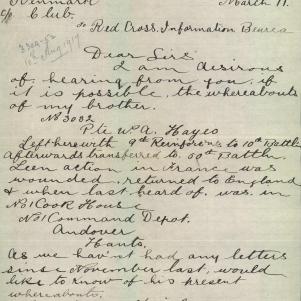 Kenmare
March 11.
c/o Club.
To Red Cross. Information Beurea
Dear Sirs
I am desirous
of hearing from you, if
it is possible, the whereabouts
of my brother.
No 3032
Pte Wm A. Hayes
Left here with 9th Reinforcms to 10th Battln
Afterwards transferred to 50th Battln.
Seen action in France was
wounded, returned to England
& when last heard of. was in
No 1 Cook House
No 1 Command Depot.
Andover
Hants.
As we hav'nt had any letters
since November last, would
like to know of his present
whereabouts.